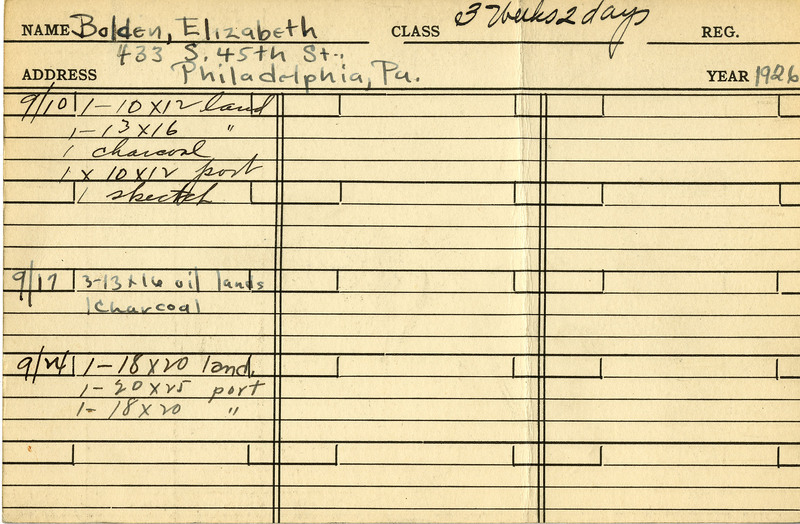 NAME Bolden, Elizabeth CLASS 3 Weeks 2 days REG.
433 S. 45th St.
ADDRESS Philadelphia, Pa. YEAR 1926
9/10 1-10 x 12 land
1-13 x 16 "
1 charcoal
1 x 10 x 12 port
1 sketch
9/17 3-13 x 16 oil lands
1 Charcoal
9/24 1-18 x 20 land.
1-20 x 25 port
1-18 x 20 "